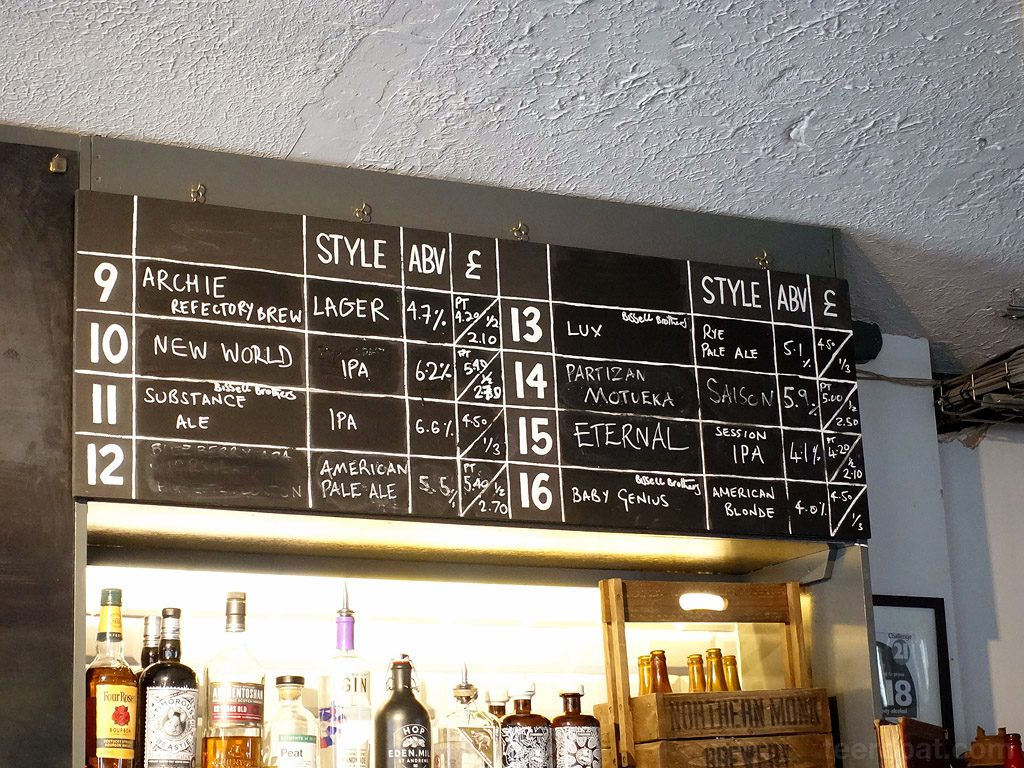 STYLE ABV £
9 ARCHIE
REFECTORY BREW LAGER 4.7% PT 4.20 1/2 2.10
10 NEW WORLD IPA 6.2% PT 5.40 1/2
11 SUBSTANCE Bissell Brothers
ALE IPA 6.6% 4.50 1/3
12 AMERICAN
PALE ALE 5.5% PT 5.40 1/2 2.70
STYLE ABV £
13 LUX Bissell Brothers RYE
PALE ALE 5.1% 4.50 1/3
14 PARTIZAN
MOTUEKA SAISON 5.9% PT 5.00 1/2 2.50
15 ETERNAL SESSION
IPA 4.1% PT 4.20 1/2 2.10
16 BABY GENIUS Bissell Brothers AMERICAN
BLONDE 4.0% 4.50 1/3
Four Roses
BOURBON
GIN
Peat
HOP
EDEN MILL
ST ANDREWS
NORTHERN MONK
BREWERY
Challenge
21
18